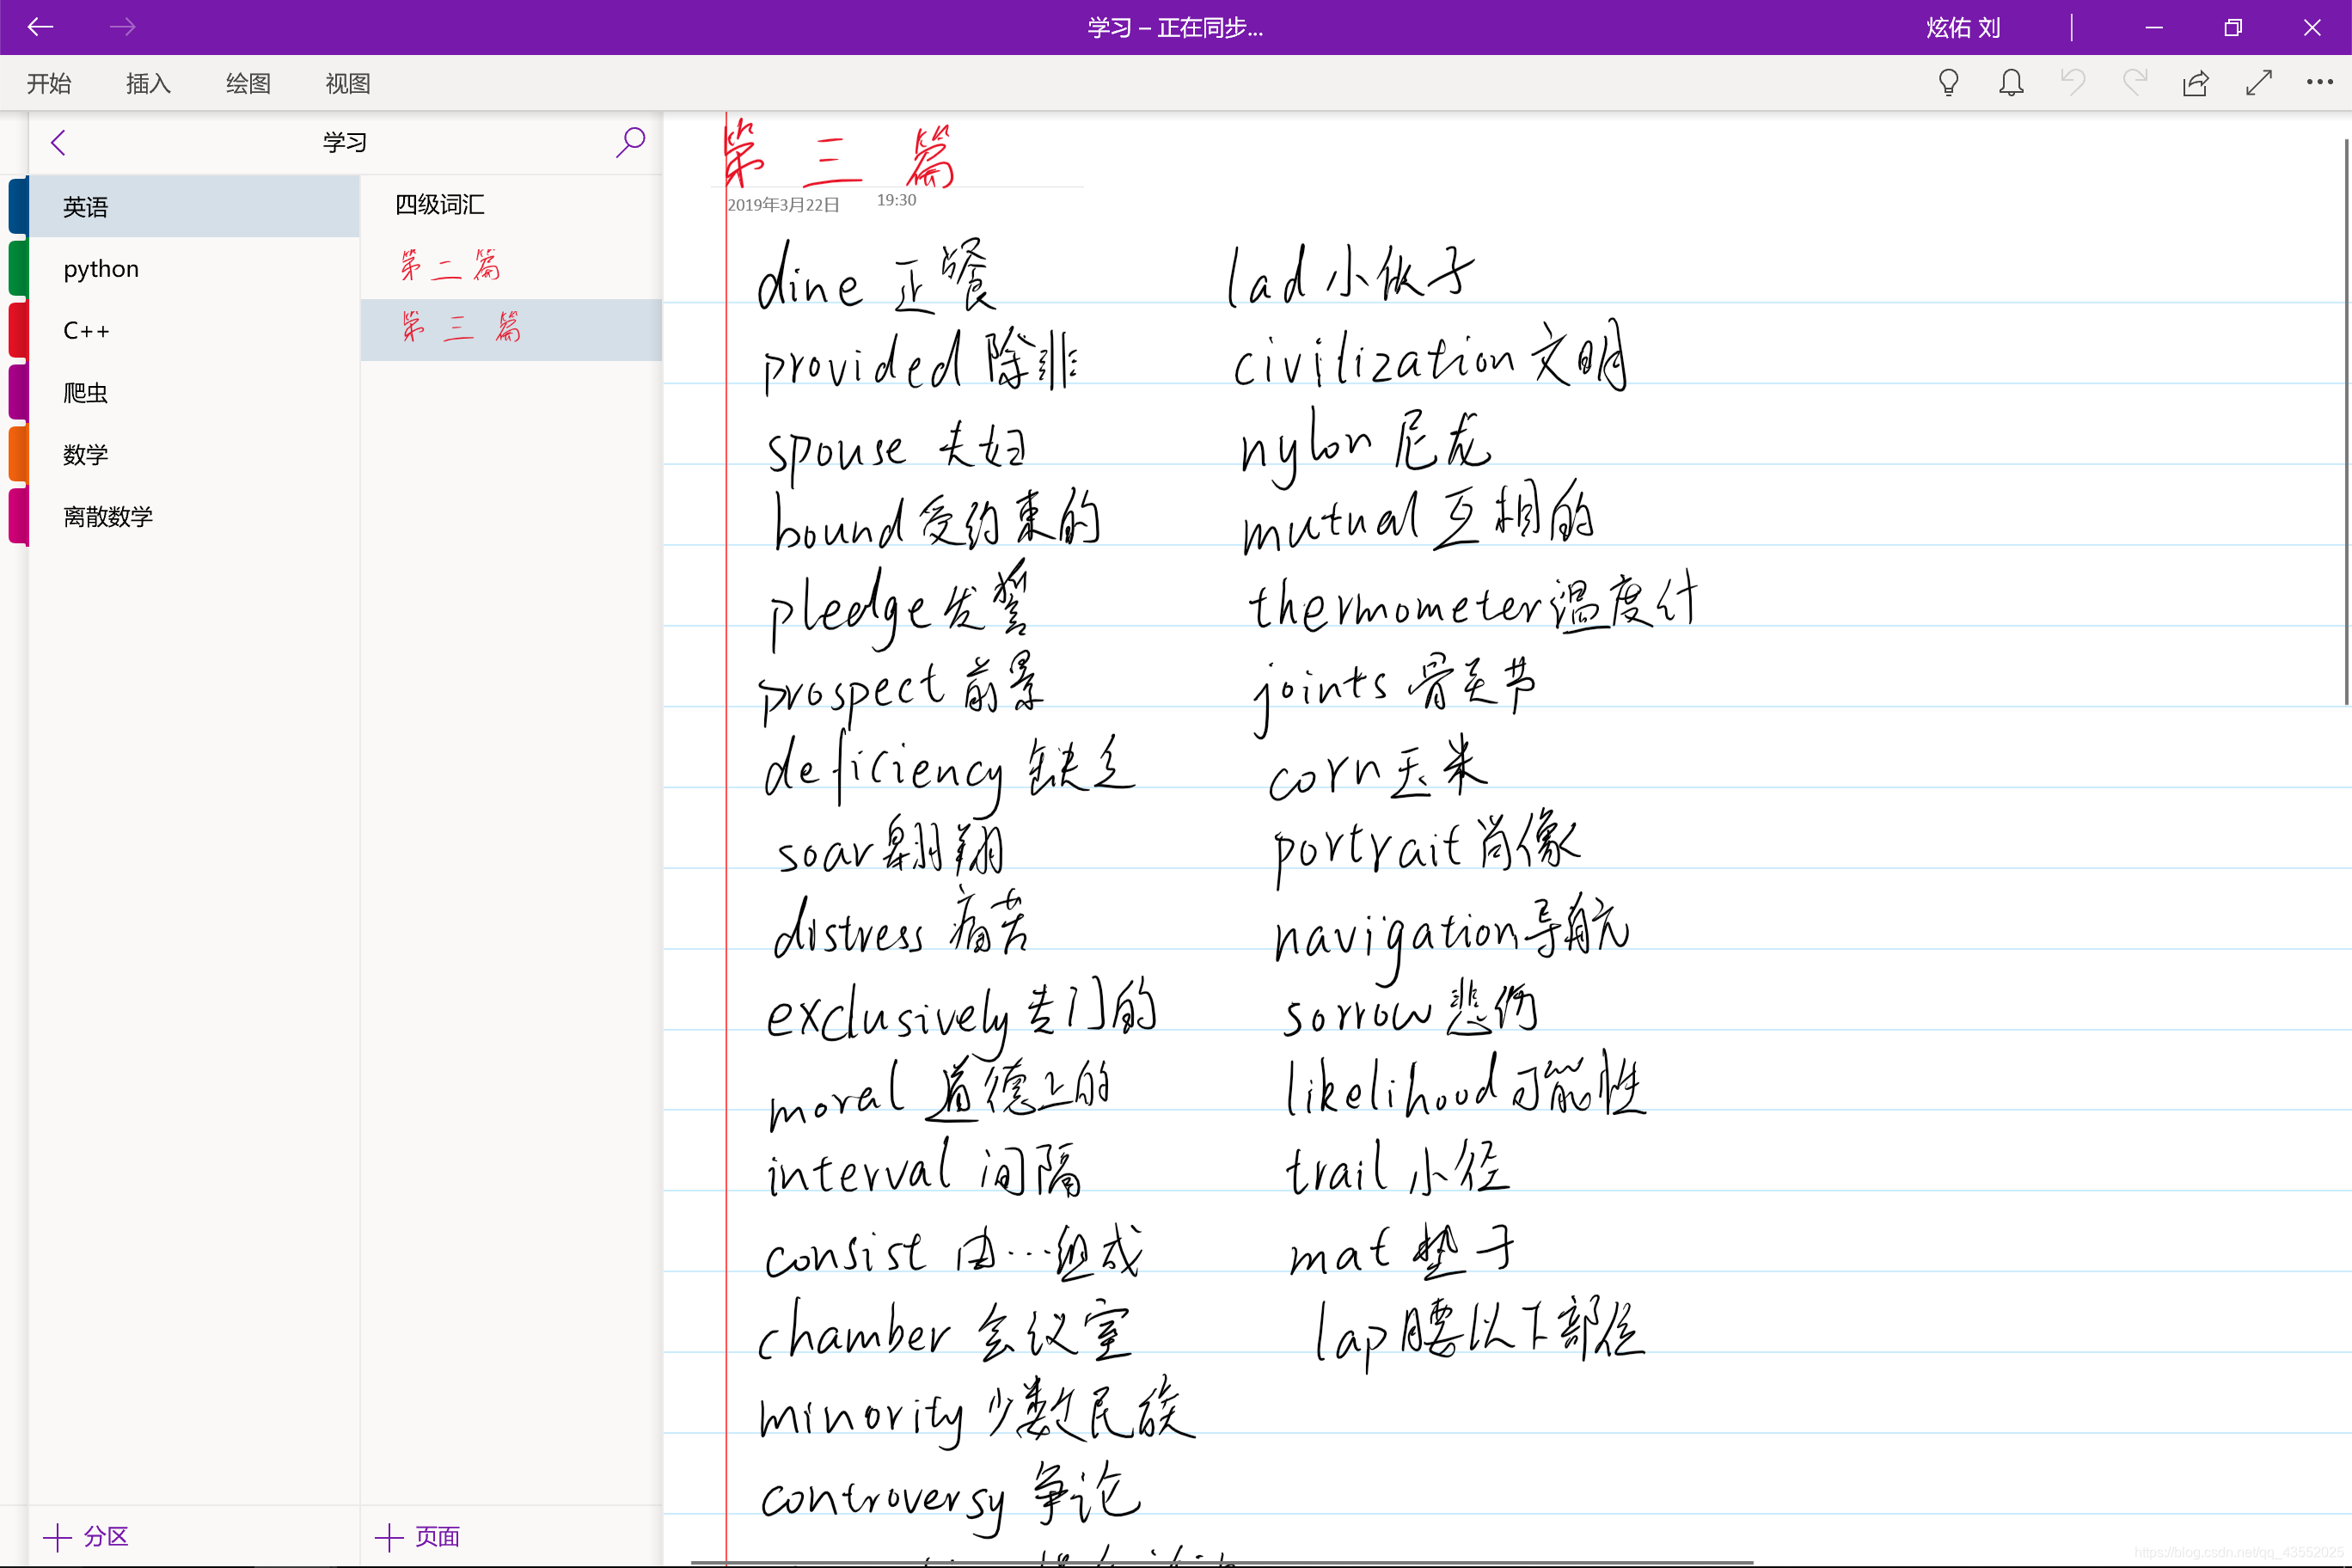 学习 – 正在同步...
炫佑 刘
开始 插入 绘图 视图
学习
英语
python
C++
爬虫
数学
离散数学
四级词汇
第二篇
第三篇
第三篇
2019年3月22日 19:30
dine 正餐 lad 小伙子
provided 除非 civilization 文明
spouse 夫妇 nylon 尼龙
bound 受约束的 mutual 互相的
pledge 发誓 thermometer 温度计
prospect 前景 joints 骨关节
deficiency 缺乏 corn 玉米
soar 翱翔 portrait 肖像
distress 痛苦 navigation 导航
exclusively 专门的 sorrow 悲伤
moral 道德上的 likelihood 可能性
interval 间隔 trail 小径
consist 由…组成 mat 垫子
chamber 会议室 lap 腰以下部位
minority 少数民族
controversy 争论
分区 页面
https://blog.csdn.net/qq_43552025